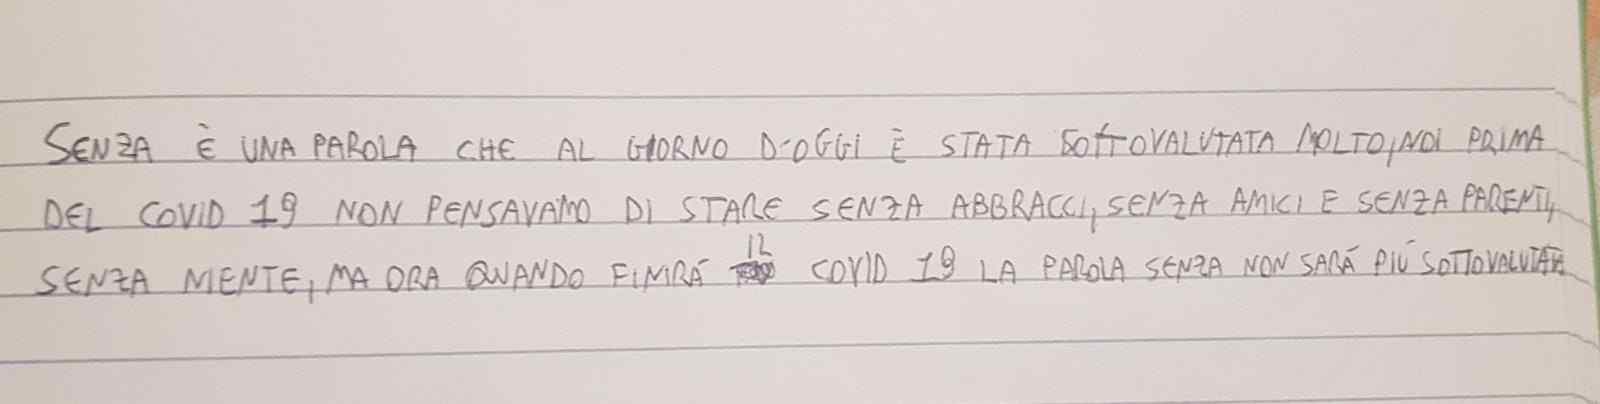 SENZA È UNA PAROLA CHE AL GIORNO D'OGGI È STATA SOTTOVALUTATA MOLTO, NOI PRIMA
DEL COVID 19 NON PENSAVAMO DI STARE SENZA ABBRACCI, SENZA AMICI E SENZA PARENTI,
SENZA MENTE, MA ORA QUANDO FINIRÁ IL COVID 19 LA PAROLA SENZA NON SARÁ PIÚ SOTTOVALUTATA